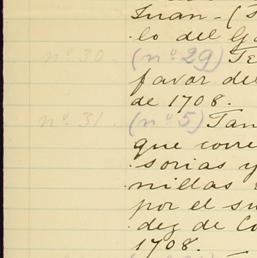 Juan-(
lo del
nº 30. (nº 29) Te
favor del
de 1708.
nº 31. (nº 5) Tan
que corre
sorias y
nillas
por el su
dez de Co
1708.